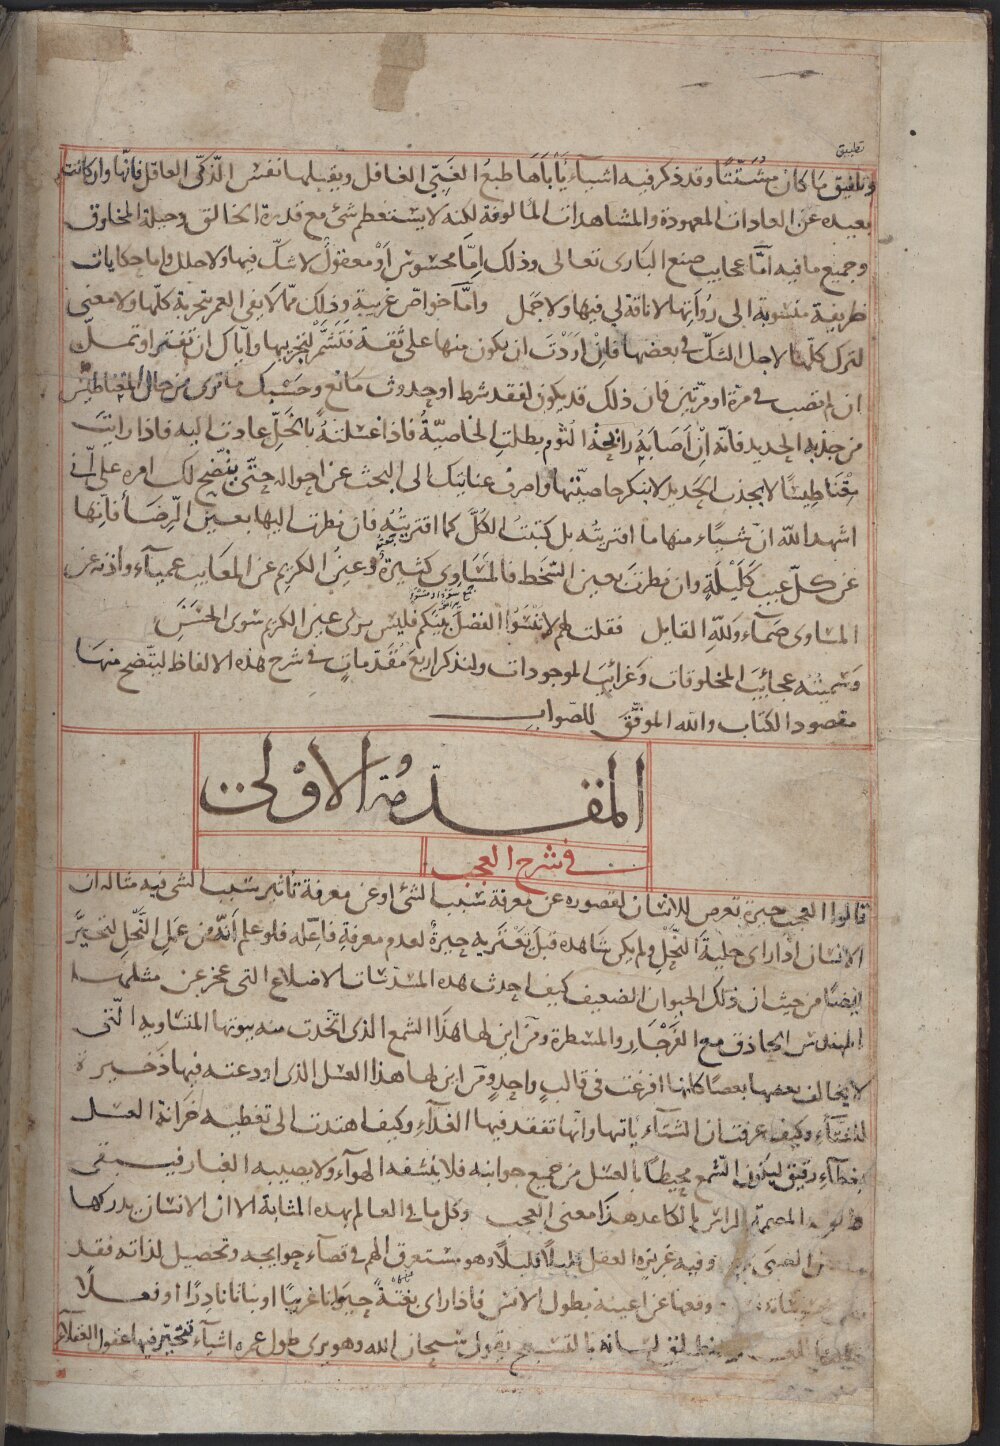 تطبيق
وتلفيق ما كان مشتتا وقد ذكر فيه اشياء يأباها طبع الغبي الغافل ويقبلها نفس الذكي العاقل فانها وان كانت
بعيده عن العادات المعهودة والمشاهدات المألوفة لكنه لا يستعظم شئ مع قدرة الخالق وجبلة المخلوق
وجميع ما فيه اما عجايب صنع البارى تعالى وذلك اما محسوس أو معقول لا شك فيها ولا خلل واما حكايات
ظريفة منسوبة الى رواتها لا ناقة لي فيها ولا جمل واما خواص غريبة وذلك مما لا يفي العمر بتجربة كلها ولا معنى
لترك كلها لاجل الشك في بعضها فان اردت ان يكون منها على ثقة فتشمر لتجريبها واياك ان تفتر او تمل
ان لم تصب في مرة او مرتين فان ذلك قد يكون لفقد شرط او حدوث مانع وحسبك ما ترى من حال المقناطيس
من جذبه الحديد فانه ان أصابه رايحة الثوم بطلت الخاصية فاذا غسلته بالخل عادت اليه فاذا رايت
مقناطيسا لا يجذب الحديد لا ينكر خاصيتها واصرف عنايتك الى البحث عن احواله حتى يتضح لك امره على اني
اشهد الله ان شياء منها ما افتريته بل كتبت الكل كما اقتريته فان نظرت اليها بعين الرضا فانها
عن كل عيب كليلة وان نظرت بعين السخط فالمساوى كثيرة وعين الكريم عن المعايب عمياء واذنه عن
المساوى صماء ولله القايل فقلت لهم لا تنسوا الفضل بينكم فليس يرى عين الكريم سوى الحسن
وسميته عجائب المخلوقات وغرائب الموجودات ولنذكر اربع مقدمات في شرح هذه الالفاظ ليتضح منها
مقصود الكتاب والله الموفق للصواب
المقدمة الاولى
في شرح العجب
قالوا العجب حيرة تعرض للانسان لقصوره عن معرفة سبب الشئ او عن معرفة تأثير سبب الشى فيه مثاله ان
الانسان اذا راى خلية النحل ولم يكن شاهده قبل تعتريه حيرة لعدم معرفة فاعله فلو علم أنه من عمل النحل لتحير
ايضا من حيث ان ذلك الحيوان الضعيف كيف احدث هذه المسدسات الاضلاع التى عجز عن مثلها
المهندس الحاذق مع الفرجار والمسطرة ومن اين لها هذا الشمع الذى اتخذت منه بيوتها المتساوية التى
لا يخالف بعضها بعضا كانها افرغت في قالب واحد ومن اين لها هذا العسل الذى اودعته فيها ذخيرة
للشتاء وكيف عرفت ان الشتاء ياتيها وانها تفقد فيها الغذاء وكيف اهتدت الى تغطيه خزانة العسل
بغطاء رقيق ليكون الشمع محيطا بالعسل من جميع جوانبه فلا ينشفه الهواء ولا يصيبه الغبار فيبقى
المصممة الراس بالكاغد هذا معنى العجب وكل ما في العالم بهذه المثابة الا ان الانسان يدركها
الصبى وفيه غريزة العقل قليلا قليلا وهو مستغرق الهم في قضاء حوايجه وتحصيل لذاته فقد
وقعها عن اعينه بطول الانس فاذا راى بغتة حيوانا غريبا او نباتا نادرا او فعلا
لسانه بالتسبيح يقول سبحان الله وهو يرى طول عمره اشياء تتحير فيها عقول العقلاء